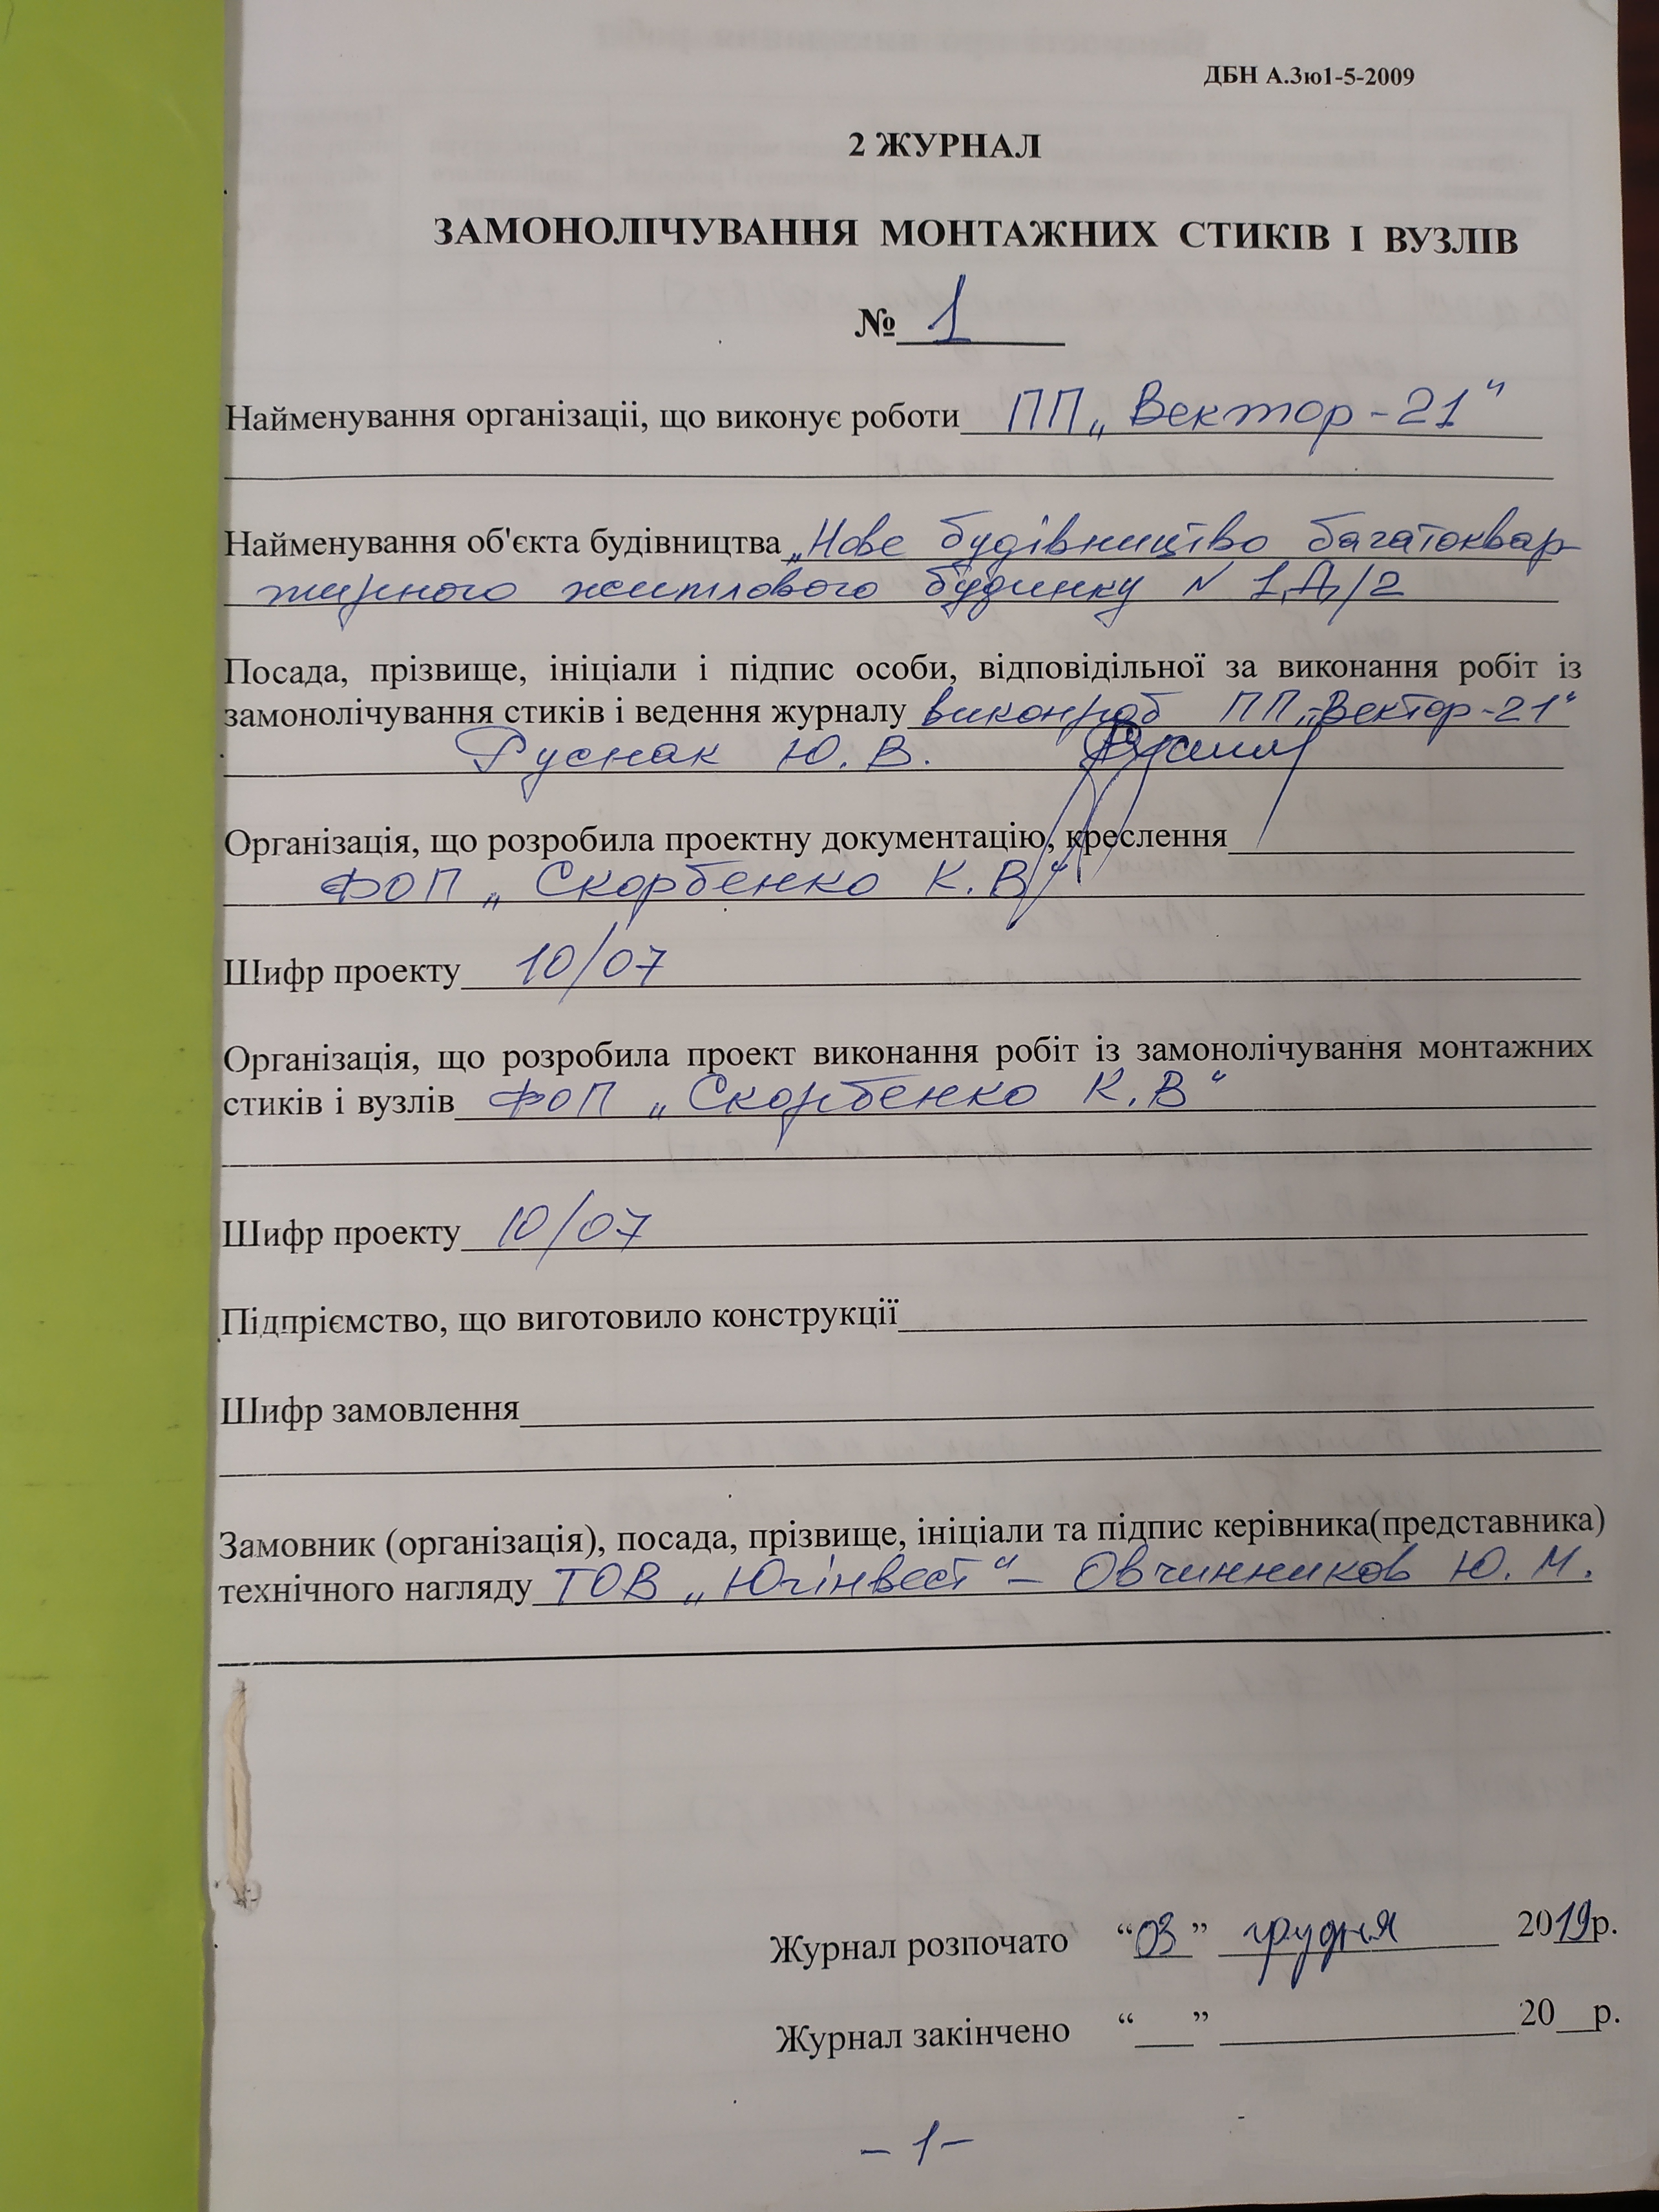 ДБН А.3ю1-5-2009
2 ЖУРНАЛ
ЗАМОНОЛІЧУВАННЯ МОНТАЖНИХ СТИКІВ І ВУЗЛІВ
№ 1
Найменування організаціі, що виконує роботи ПП „Вектор-21"
Найменування об'єкта будівництва „Нове будівництво багатоквар
тирного житлового будинку N 1Д/2
Посада, прізвище, ініціали і підпис особи, відповідільної за виконання робіт із
замонолічування стиків і ведення журналу виконроб ПП „Вектор-21"
Руснак Ю. В.
Організація, що розробила проектну документацію, креслення
ФОП „Скорбенко К. В"
Шифр проекту 10/07
Організація, що розробила проект виконання робіт із замонолічування монтажних
стиків і вузлів ФОП „Скорбенко К. В"
Шифр проекту 10/07
Підпріємство, що виготовило конструкції
Шифр замовлення
Замовник (організація), посада, прізвище, ініціали та підпис керівника(представника)
технічного нагляду ТОВ „Югінвест" – Овчинников Ю. М.
Журнал розпочато “03” грудня 2019р.
Журнал закінчено “___” 20__р.
– 1 –